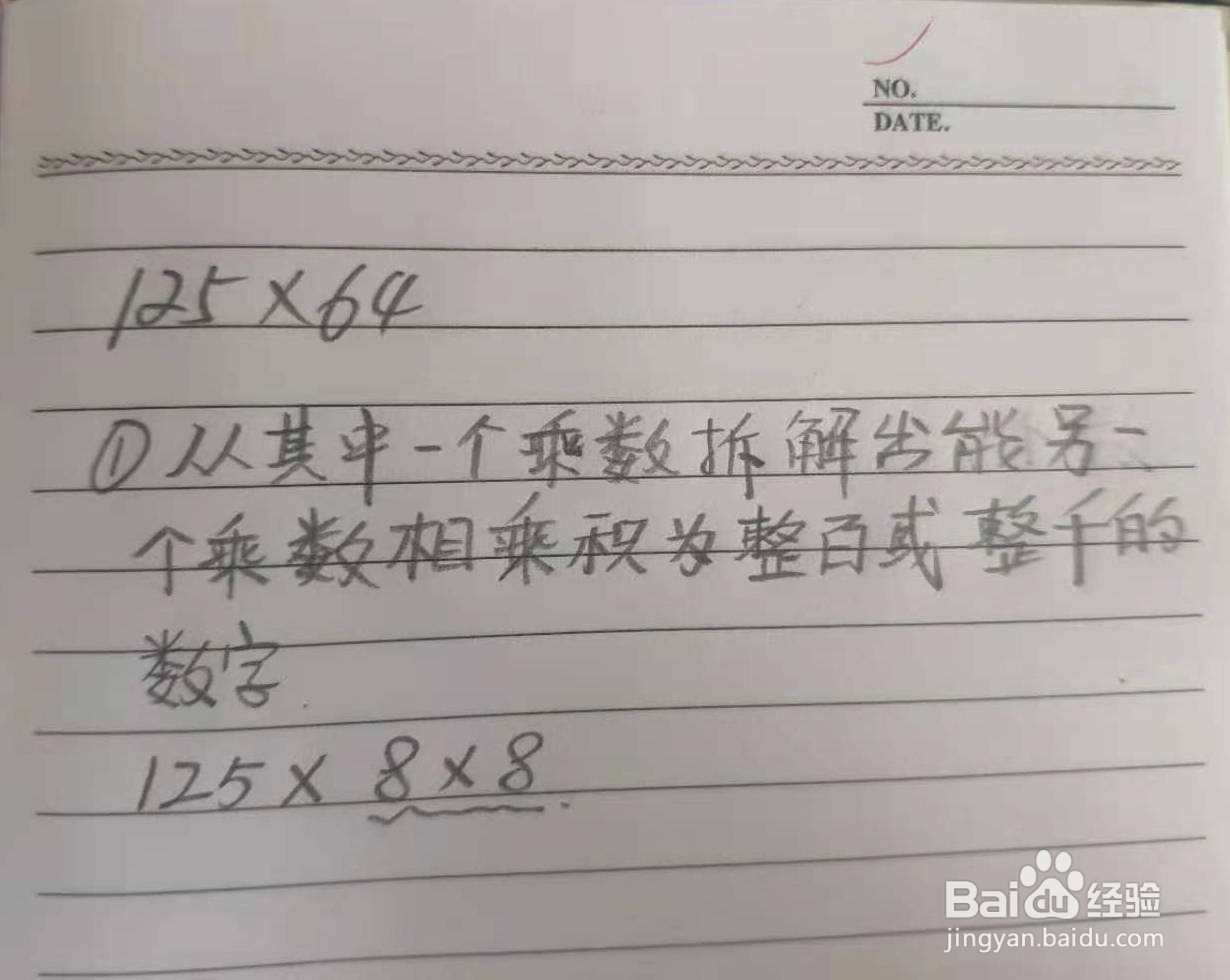 NO.
DATE.
125×64
①从其中一个乘数拆解出能另一
个乘数相乘积为整百或整千的
数字.
125×8×8.
Baidu经验
jingyan.baidu.com